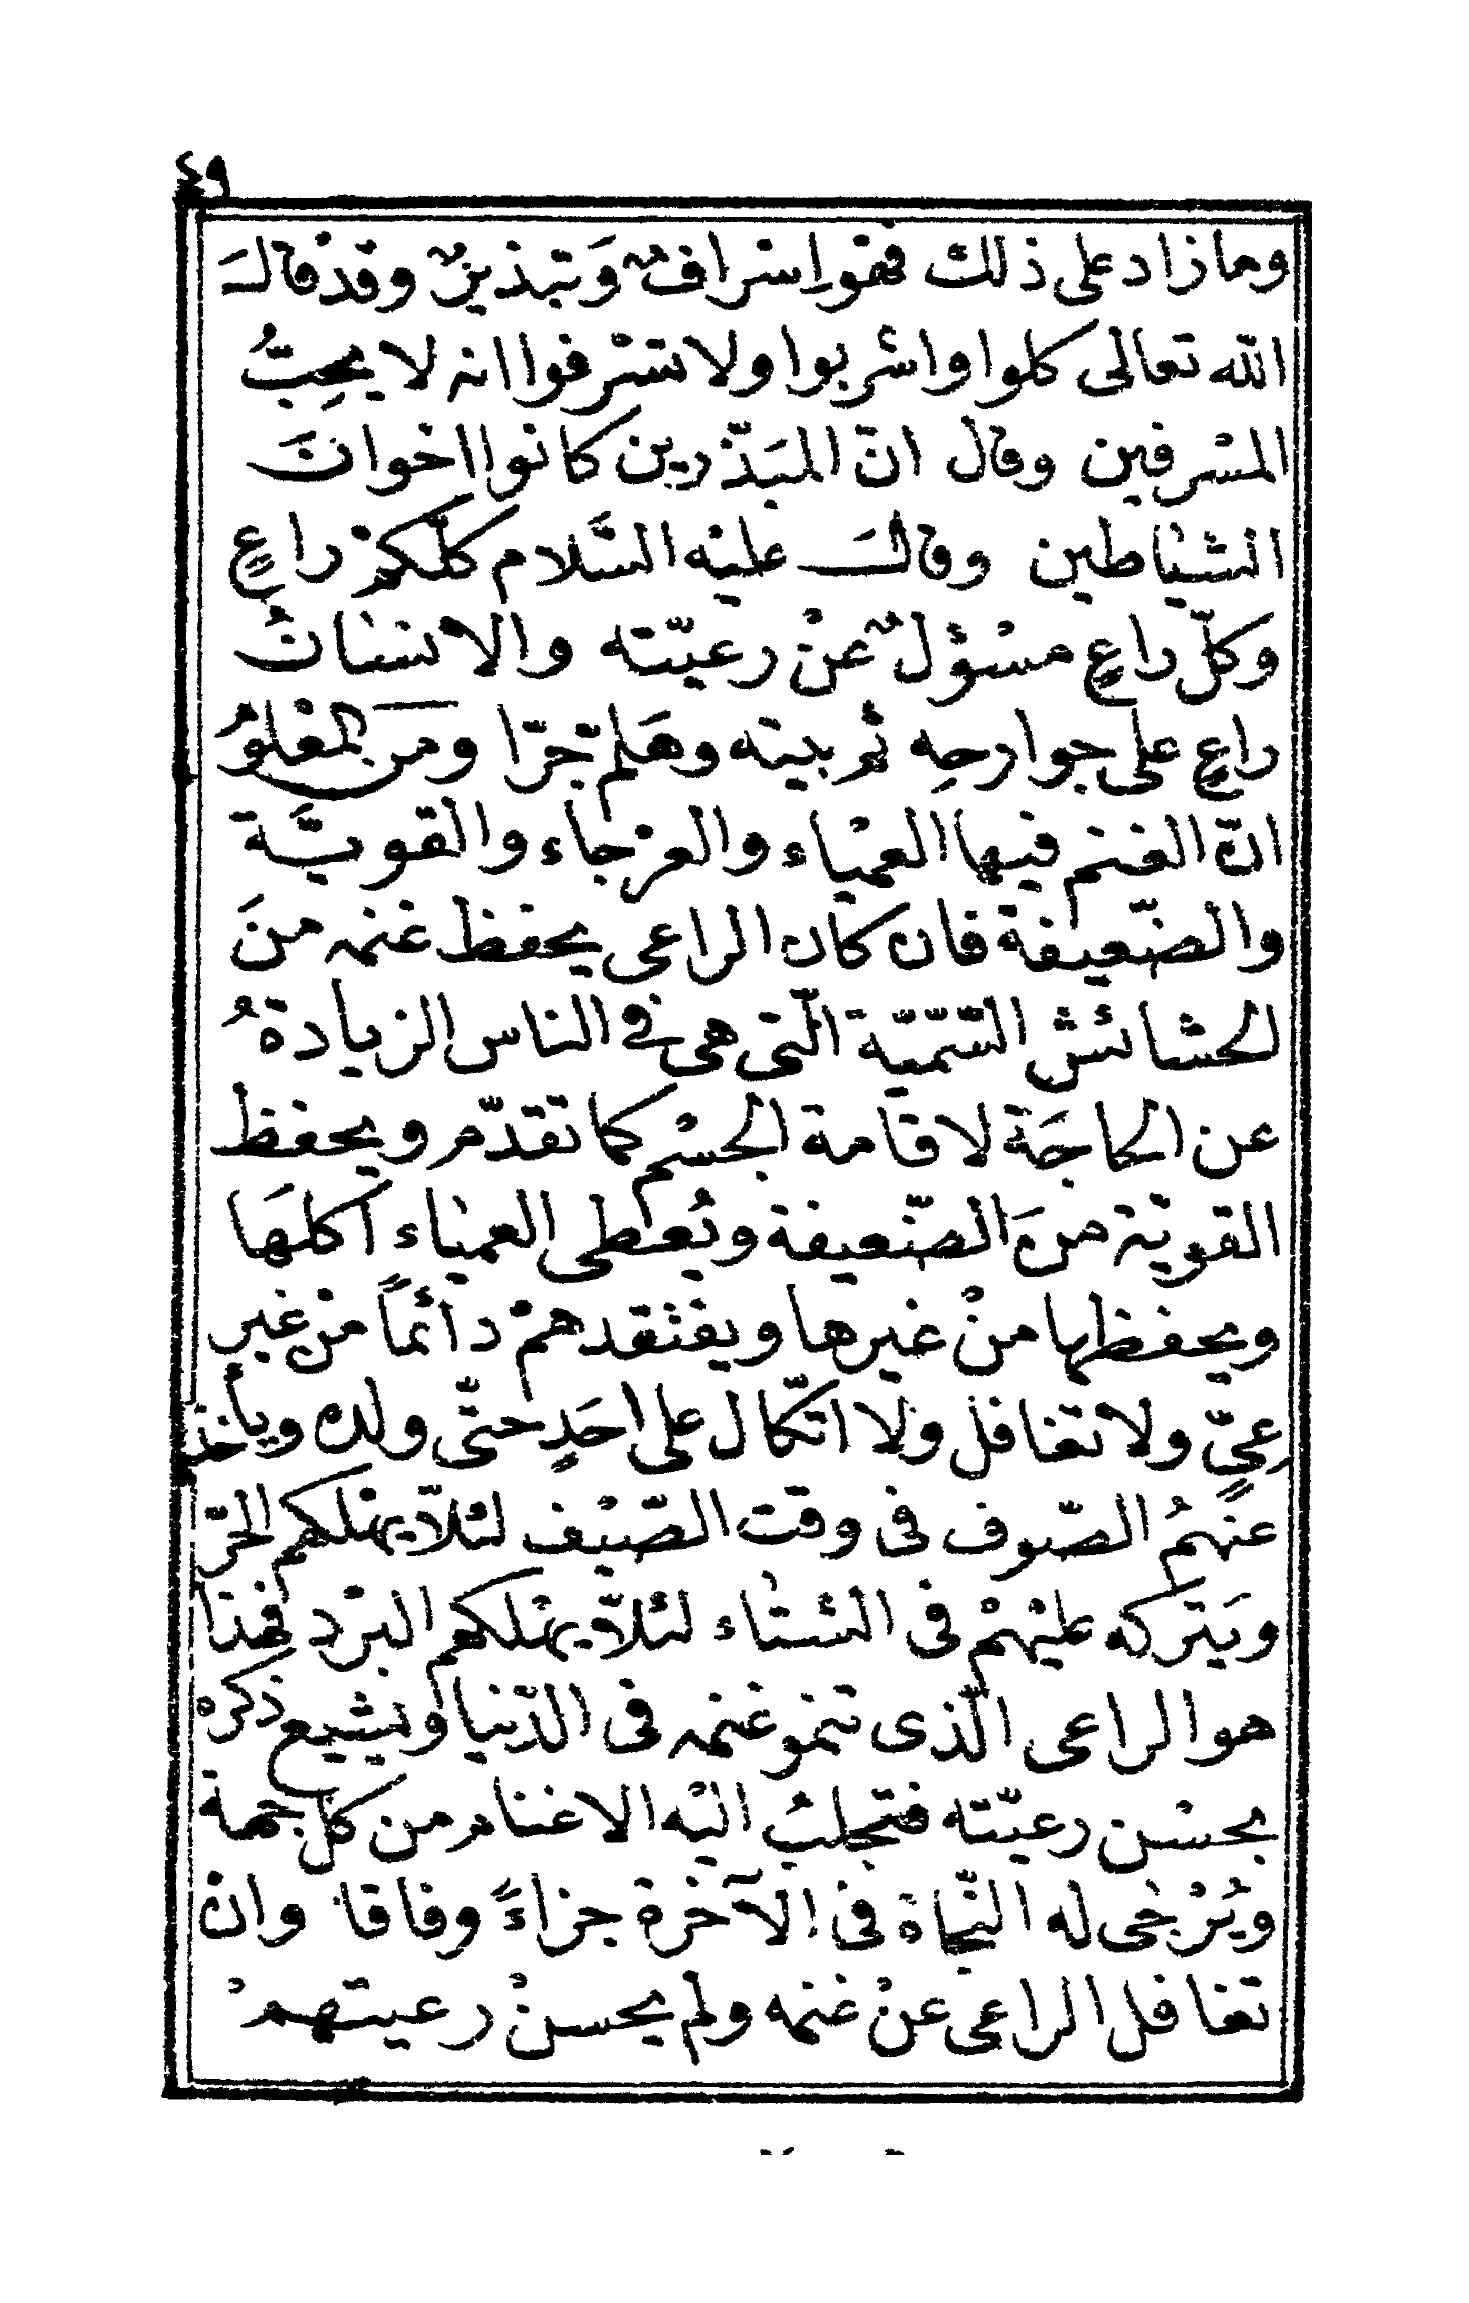 ٤٩
وما زاد على ذلك فهو اِسْرافٌ وَتبذيرٌ وقدْ قالَ
الله تعالى كلوا واشربوا ولا تسْرفوا انه لا يحِبُّ
المسْرفين وقال انّ المبَذّرين كانوا اخوانَ
الشياطين وقالَ عليْه السَّلام كلّكمْ راعٍ
وكلّ راعٍ مسْؤلٌ عنْ رعيّته والانسانُ
راعٍ على جوارحِه ثمّ بيته وهَلمّ جرّا ومَن المعْلومُ
انّ الغنم فيها العمْياء والعرْجاء والقويَّة
والضّعيفة فان كان الراعى يحفظ غنمه منَ
الحشائش السّمّيّة الّتى هى فى الناس الزيادةُ
عن الحاجَة لاقامة الجسْم كما تقدّم ويحفظ
القويّة منَ الضّعيفة ويُعطى العمياء اكلهَا
ويحفظها منْ غيرها ويفتقدهمْ دائماً من غير
عىٍّ ولا تغافل ولا اتّكال على احَدٍ حتّى ولده ويأخذ
عنهمُ الصّوف فى وقت الصّيْف لئلاّ يهْلكهم الحرّ
ويَتركه عليْهمْ فى الشتاء لئلاّ يهْلكهم البرْد فهذا
هو الراعى الّذى تنمو غنمه فى الدّنيا ويشيع ذكره
بحسْن رعيّته فتجلبُ اليْه الاغنام من كلّ جهة
ويُرْجٰى له النّجاة فى الآخرة جزاءً وفاقا وان
تغافل الراعى عنْ غنمه ولم يحسنْ رعيتهمْ